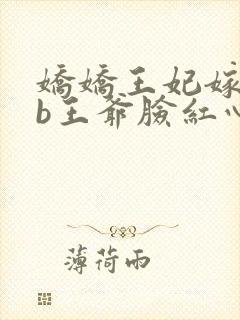 嬌嬌王妃嫁
b王爺臉紅心
薄荷雨